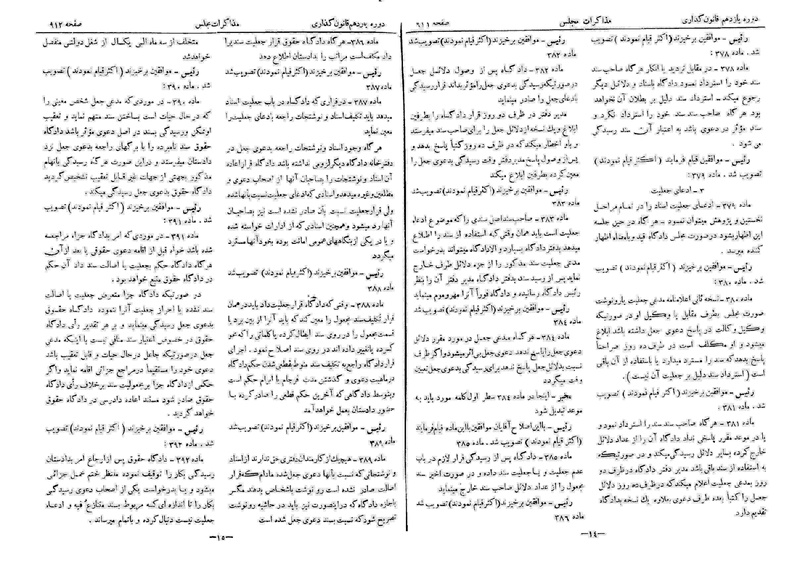 دوره یازدهم قانون گذاری
مذاکرات مجلس
صفحه ۹۱۱
رئیس - موافقین برخیزند (اکثر قیام نمودند) تصویب
شد . ماده ۳۷۸ :
ماده ۳۷۸ - در مقابل تردید یا انکار هر گاه صاحب سند
سند خود را استرداد نمود دادگاه باسناد و دلائل دیگر
رجوع میکند . استرداد سند دلیل بر بطلان آن نخواهد
بود هر گاه صاحب سند سند خود را استرداد نکرد و
سند مؤثر در دعوی باشد به اعتبار آن سند رسیدگی
می شود .
رئیس - موافقین قیام فرمایند ( اکثر قیام نمودند )
تصویب شد . ماده ۳۷۹ :
۳ - ادعای جعلیت
ماده ۳۷۹ - ادعای جعلیت اسناد را در تمام مراحل
نخستین و پژوهش میتوان نمود - هر گاه در حین جلسه
این اظهار بشود در صورت مجلس دادگاه قید و بامضاء اظهار
کننده میرسد .
رئیس - موافقین برخیزند (اکثر قیام نمودند) تصویب
شد . ماده ۳۸۰ :
ماده ۳۸۰ - نسخه ثانی اعلامنامه مدعی جعلیت یا رونوشت
صورت مجلس بطرف مقابل یا وکیل او در صورتیکه
وکیل وکالت در پاسخ دعوی جعل داشته باشد ابلاغ
میشود و او مکلف است در ظرف ده روز صراحتاً
پاسخ بدهد که سند را مسترد میدارد یا استفاده از آن باقی
است (استرداد سند دلیل بر جعلیت آن نیست) .
رئیس - موافقین برخیزند (اکثر قیام نمودند) تصویب
شد . ماده ۳۸۱ :
ماده ۳۸۱ - هر گاه صاحب سند سند را استرداد نمود و
یا در موعد مقرر پاسخی نداد دادگاه آن را از عداد دلائل
خارج کرده بسایر دلائل رسیدگی میکند و در صورتیکه
به استفاده از سند باقی باشد مدیر دفتر دادگاه در ظرف دو
روز بمدعی جعلیت اعلام میکند که در ظرف ده روز دلائل
جعل را کتباً بعده طرف دعوی بعلاوه یک نسخه بدادگاه
تقدیم دارد
رئیس - موافقین برخیزند (اکثر قیام نمودند) تصویب شد
ماده ۳۸۲
ماده ۳۸۲ - دادگاه پس از وصول دلائل جعل
در صورتیکه رسیدگی بدعوی جعل را مؤثر بداند قرار رسیدگی
بادعای جعل را صادر مینماید
مدیر دفتر در ظرف دو روز قرار دادگاه را بطرفین
ابلاغ و یک نسخه از دلائل جعل را برای صاحب سند میفرستد
و باو اخطار میکند که در ظرف ده روز کتباً پاسخ بدهد و
پس از وصول پاسخ مدیر دفتر وقت رسیدگی بدعوی جعل را
معین کرده بطرفین ابلاغ میکند
رئیس - موافقین برخیزند (اکثر قیام نمودند) تصویب شد
ماده ۳۸۳
ماده ۳۸۳ - صاحب سند اصل سندی را که موضوع ادعای
جعلیت است باید همان وقتی که استفاده از سند را اطلاع
میدهد بدفتر دادگاه بسپارد و الا دادگاه میتواند بدرخواست
مدعی جعلیت سند مذکور را از جزء دلائل طرف خارج
نماید پس از رسید سند بدادگاه مدیر دفتر آن را بنظر
رئیس دادگاه رسانیده و دادگاه فوراً آن را مهر و موم مینماید
رئیس - موافقین برخیزند (اکثر قیام نمودند) تصویب شد
ماده ۳۸۴
ماده ۳۸۴ - هر گاه مدعی جعل در مورد مقرر دلائل
دعوی جعل را پاسخ ندهد دعوی جعل بی اثر میشود و اگر طرف
نسبت بدلائل جعل پاسخ ندهد برای رسیدگی بدعوی جعل تعیین
وقت میگردد
مخبر - اینجا در ماده ۳۸۴ سطر اول کلمه مورد باید به
موعد تبدیل شود
رئیس - با این اصلاح آقایان موافقین با این ماده قیام فرمایند
(اکثر قیام نمودند) تصویب شد . ماده ۳۸۵
ماده ۳۸۵ - دادگاه پس از رسیدگی قرار لازم در باب
عدم جعلیت و یا جعلیت سند داده و در صورت اخیر سند
مجعول را از عداد دلائل صاحب سند خارج مینماید
رئیس - موافقین برخیزند (اکثر قیام نمودند) تصویب شد
ماده ۳۸۶
-۱۴-
دوره یازدهم قانون گذاری
مذاکرات مجلس
صفحه ۹۱۲
ماده ۳۸۶ - هر گاه دادگاه حقوق قرار جعلیت سند را
داد مکلف است مراتب را بدادستان اطلاع دهد
رئیس - موافقین برخیزند (اکثر قیام نمودند) تصویب شد
ماده ۳۸۷
ماده ۳۸۷ - در قراری که دادگاه در باب جعلیت اسناد
میدهد باید تکلیف اسناد و نوشتجات راجعه بادعای جعلیت را
معین نماید
هر گاه وجود اسناد و نوشتجات راجعه بدعوی جعل در
دفترخانه دادگاه دیگر لزومی نداشته باشد دادگاه قرار اعاده
آن اسناد و نوشتجات را بصاحبان آنها از اصحاب دعوی و
مطلعین و غیره میدهد و اسنادی که ادعای جعلیت نسبت بآنها شده
ولی قرار جعلیت نسبت بآن صادر نشده است نیز بصاحبان
آنها رد میشود و همچنین اسنادی که از ادارات خواسته شده
و یا در یکی از بنگاههای عمومی امانت بوده بخود آنها مسترد
میگردد
رئیس - موافقین برخیزند (اکثر قیام نمودند) تصویب شد
ماده ۳۸۸
ماده ۳۸۸ - وقتی که دادگاه قرار جعلیت داد باید در همان
قرار تکلیف سند مجعول را معین کند که باید آن را از بین برد یا
قسمت مجعول را در روی سند ابطال کرده یا کلماتی را که محو
کرده یا تغییر داده اند در روی سند اصلاح نمود . اجرای
قرار دادگاه راجع به تکلیف سند منوط بقطعی شدن حکم دادگاه
در ماهیت دعوی و گذشتن مدت فرجام یا ابرام حکم است
و بتوسط دادگاهی که آخرین حکم قطعی را صادر کرده با
حضور دادستان بعمل خواهد آمد
رئیس - موافقین برخیزند (اکثر قیام نمودند) تصویب شد
ماده ۳۸۹
ماده ۳۸۹ - هیچیک از کارمندان دفتری حق ندارند از اسناد
و نوشتجاتی که نسبت بآنها دعوی جعل شده مادام که قرار
اصالت صادر نشده است رونوشت باشخاص بدهند مگر
باجازه دادگاه که در اینصورت نیز باید در حاشیه رونوشت
تصریح شود که نسبت بسند دعوی جعل شده است
متخلف از سه ماه الی یکسال از شغل دولتی منفصل
خواهد شد
رئیس - موافقین برخیزند ( اکثر قیام نمودند ) تصویب
شد . ماده ۳۹۰ :
ماده ۳۹۰ - در موردی که مدعی جعل شخص معینی را
که در حال حیات است بساختن سند متهم نماید و تعقیب
او ممکن و رسیدگی بسند در اصل دعوی مؤثر باشد دادگاه
حقوق سند نامبرده را با برگهای راجعه بدعوی جعل نزد
دادستان بفرستد و در این صورت هر گاه رسیدگی باتهام
مذکور بجهتی از جهات غیر قابل تعقیب تشخیص گردید
دادگاه حقوق بدعوی جعل رسیدگی میکند .
رئیس - موافقین برخیزند (اکثر قیام نمودند) تصویب
شد . ماده ۳۹۱ :
ماده ۳۹۱ - در موردی که امر بدادگاه جزا مراجعه
شده باشد خواه قبل از اقامه دعوی حقوقی یا بعد از آن
هر گاه دادگاه حکم بجعلیت یا اصالت سند داد آن حکم
در دادگاه حقوق متبع خواهد بود .
در صورتیکه دادگاه جزا متعرض جعلیت یا اصالت
سند نشده یا احراز جعلیت آن را ننموده دادگاه حقوق
بدعوی جعل رسیدگی مینماید و بر هر تقدیر رأی دادگاه
حقوق در خصوص اعتبار سند منافی نیست با اینکه مدعی
جعل در صورتیکه جاعل در حال حیات و قابل تعقیب باشد
دعوی خود را مستقیماً در مراجع جزائی اقامه نماید و اگر
حکمی از دادگاه جزا بر مجعولیت سند بر خلاف رأی دادگاه
حقوق صادر شود مستند اعاده دادرسی در دادگاه حقوق
خواهد گردید .
رئیس - موافقین برخیزند (اکثر قیام نمودند) تصویب
شد . ماده ۳۹۲ :
ماده ۳۹۲ - دادگاه حقوق پس از ارجاع امر بدادستان
رسیدگی بکار را توقیف نموده منتظر ختم عمل جزائی
میشود و یا بدرخواست یکی از اصحاب دعوی رسیدگی
بکار را تا اندازه ای که مربوط بسند متنازع فیه و ادعاء
جعلیت نیست دنبال کرده و باتمام میرساند .
-۱۵-